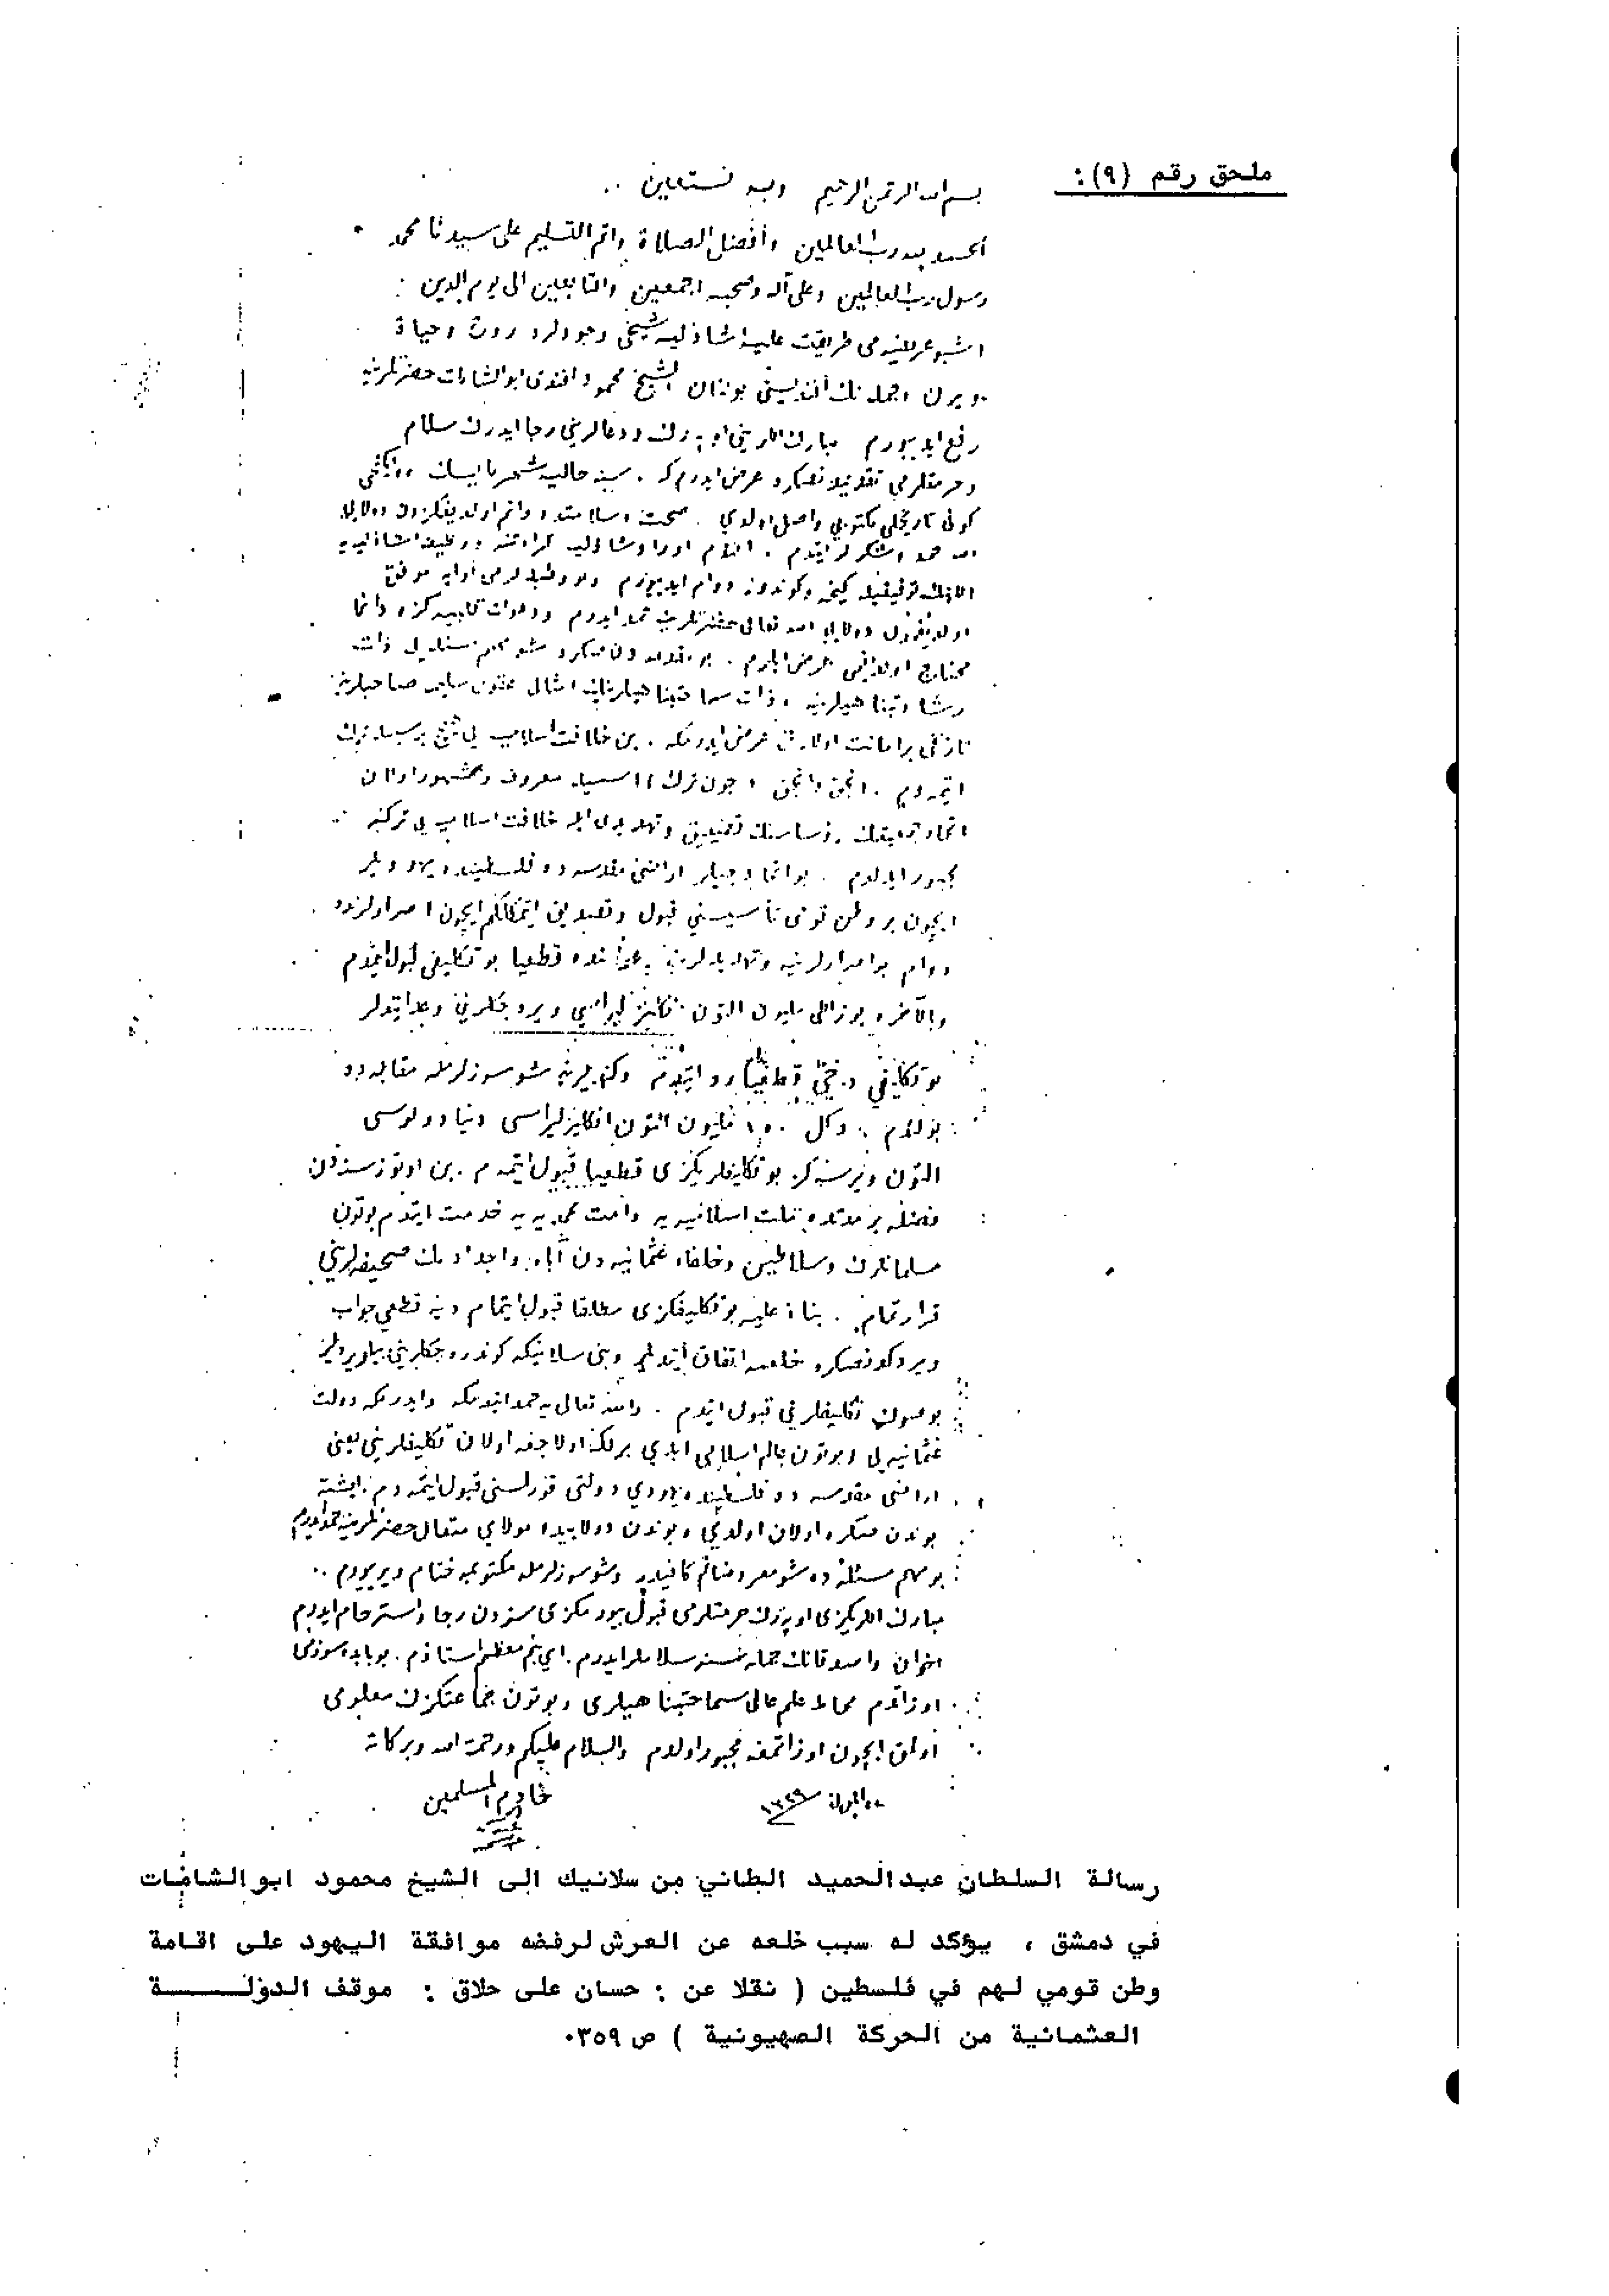 ملحق رقم (٩):
بسم الله الرحمن الرحيم وبه نستعين ..
الحمد لله رب العالمين وأفضل الصلاة واتم التسليم على سيدنا محمد
رسول رب العالمين وعلى آله وصحبه اجمعين والتابعين الى يوم الدين .
اشبو عريضه مى طريقت عليه شاذليه شيخى وجودلره روح وحياة
ويرن وجمله نك افنديسى بولنان الشيخ محمود افندى ابو الشامات حضرتلرينه
رفع ايديورم مبارك اللرينى اوپه رك ودعالرينى رجا ايدرك سلام
وحرمتلرمى تقديمدنصكره عرض ايدرم كه . سنه حاليه شهر مايسك
كونى تاريخلى مكتوبى واصل اولدى . صحت وسلامتده دائم اولديغكزدن دولايى
الله حمد وشكرلر ايتدم . افندم اوراد شاذليه قرائتنه ووظيفه شاذليه يه
اللهك توفيقيله كيجه وكوندوز دوام ايديورم
اولديغمدن دولايى الله تعالى حضرتلرينه حمد ايدرم ودعوات قلبيه كزه دائما
محتاج اولديغمى عرض ايلرم . بو مقدمه دن صكره شو مهم مسئله يى ذات
رشادتپناهيلرينه وذات سماحتپناهيلرينك امثالى عقول سليمه صاحبلرينه
تاريخى بر امانت اولارق عرض ايدرمكه . بن خلافت اسلاميه يى هيچ بر سببله ترك
ايتمه دم . انجق وانجق « جون ترك » اسميله معروف ومشهور اولان
اتحاد جمعيتنك رؤساسنك تضييق وتهديدى ايله خلافت اسلاميه يى تركه
مجبور ايدلدم . بو اتحادجيلر اراضئ مقدسه ده فلسطينده يهوديلر
ايچون بر وطن قومى تأسيسنى قبول وتصديق ايتمكلكم ايچون اصرارلرنده
دوام بو اصرارلرينه وتهديدلرينه رغما بنده قطعيا بو تكليفى قبول ايتمدم
وبالآخره يوز اللى مليون التون انكليز ليراسى ويره جكلرينى وعد ايتديلر
بو تكليفى دخى قطعيا رد ايتدم وكنديلرينه شو سوزلرمله مقابله ده
بولندم . دكل ١٥٠ مليون التون انكليز ليراسى دنيا دولوسى
التون ويرسه كز بو تكليفلريكزى قطعيا قبول ايتمه م . بن اوتوز سنه دن
فضله بر مدتده ملت اسلاميه يه وامت محمديه يه خدمت ايتدم بوتون
مسلمانلرك وسلاطين وخلفاء عثمانيه دن آباء واجدادمك صحيفه لرينى
قرارتمام . بناء عليه بو تكليفكزى مطلقا قبول ايتمام ديه قطعى جواب
ويردكدنصكره خلعمه اتفاق ايتديلر وبنى سلانيكه كوندره جكلرينى بيلديرديلر
بو صوك تكليفلرينى قبول ايتدم . والله تعالى يه حمد ايتدمكه وايدرمكه دولت
عثمانيه يى وبوتون عالم اسلامى ابدى بر لكه اولاجق اولان تكليفلرينى يعنى
اراضئ مقدسه ده فلسطينده يهودى دولتى قورلمسنى قبول ايتمه دم . ايشته
بوندن صكره اولان اولدى وبوندن دولاييده مولاى متعال حضرتلرينه حمد ايدرم
بو مهم مسئله ده شو معروضاتم كافيدر وشو سوزلرمله مكتوبمه ختام ويريورم ..
مبارك اللريكزى اوپه رك حرمتلرمى قبول بيورمكزى سزدن رجا واسترحام ايدرم
اخوان واصدقانك جمله سنه سلاملر ايدرم . اى بنم معظم استاذم . بو بابده سوزمى
اوزاتدم محاط علم عالى سماحتپناهيلرى وبوتون جماعتكزك معلومى
اولمق ايچون اوزاتمغه مجبور اولدم والسلام عليكم ورحمة الله وبركاته
ايلول ١٣٢٩ خادم المسلمين
رسالة السلطان عبد الحميد الثاني من سلانيك الى الشيخ محمود ابو الشامات
في دمشق ، يؤكد له سبب خلعه عن العرش لرفضه موافقة اليهود على اقامة
وطن قومي لهم في فلسطين ( نقلا عن : حسان على حلاق : موقف الدولة
العثمانية من الحركة الصهيونية ) ص ٣٥٩.